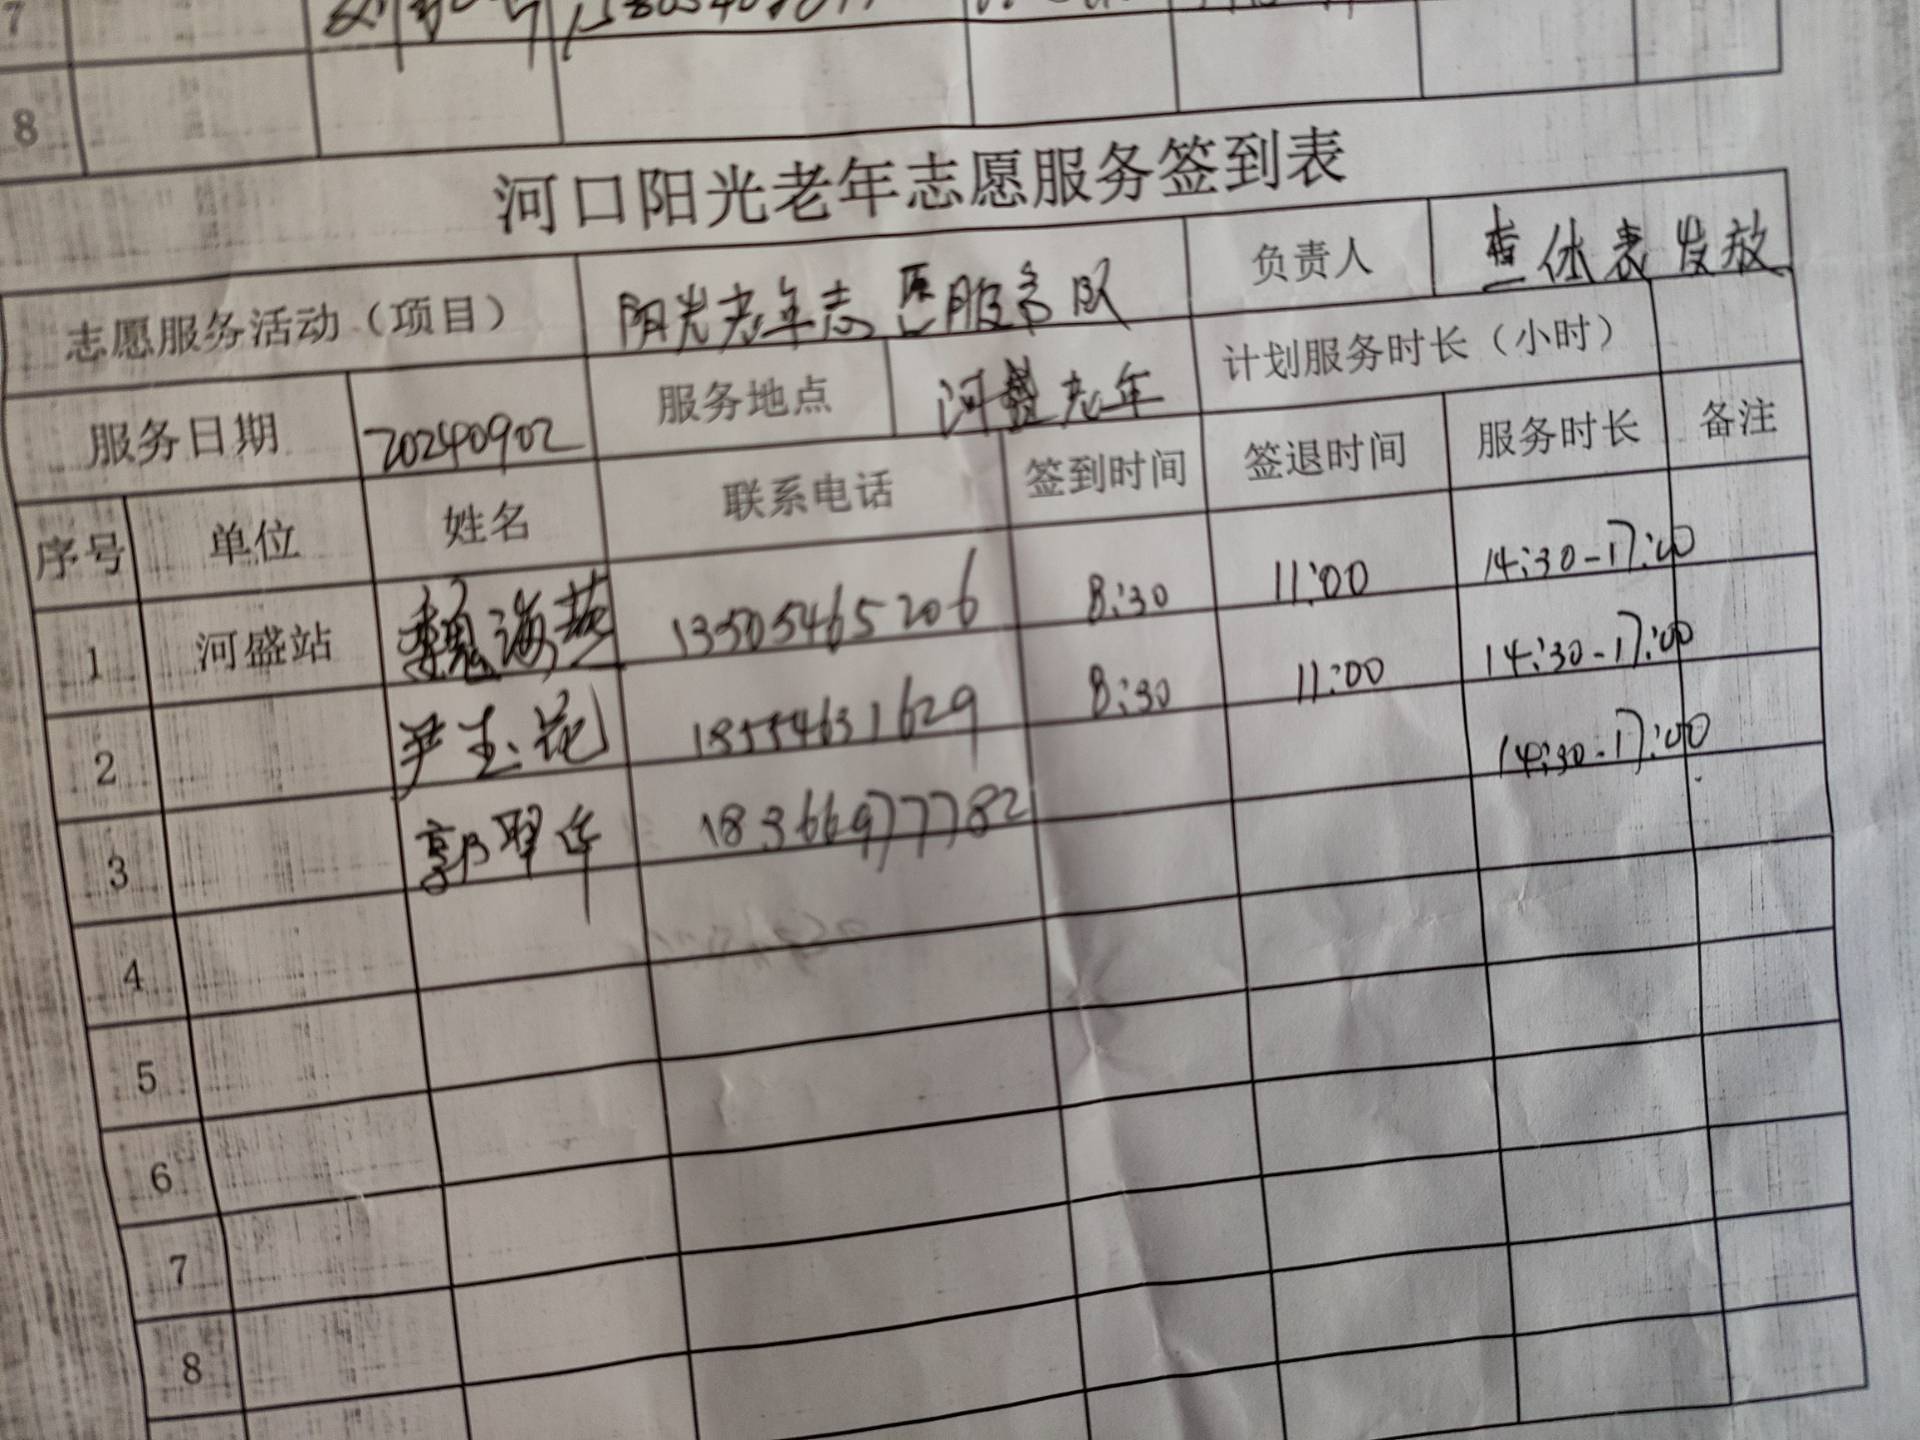 7
8
河口阳光老年志愿服务签到表
志愿服务活动（项目） 阳光老年志愿服务队 负责人 查体表发放
服务日期 20240902 服务地点 河盛老年 计划服务时长（小时）
序号 单位 姓名 联系电话 签到时间 签退时间 服务时长 备注
1 河盛站 魏海燕 13505465206 8:30 11:00 14:30-17:00
2 尹玉花 18554631629 8:30 11:00 14:30-17:00
3 郭翠华 18366977782 14:30-17:00
4
5
6
7
8